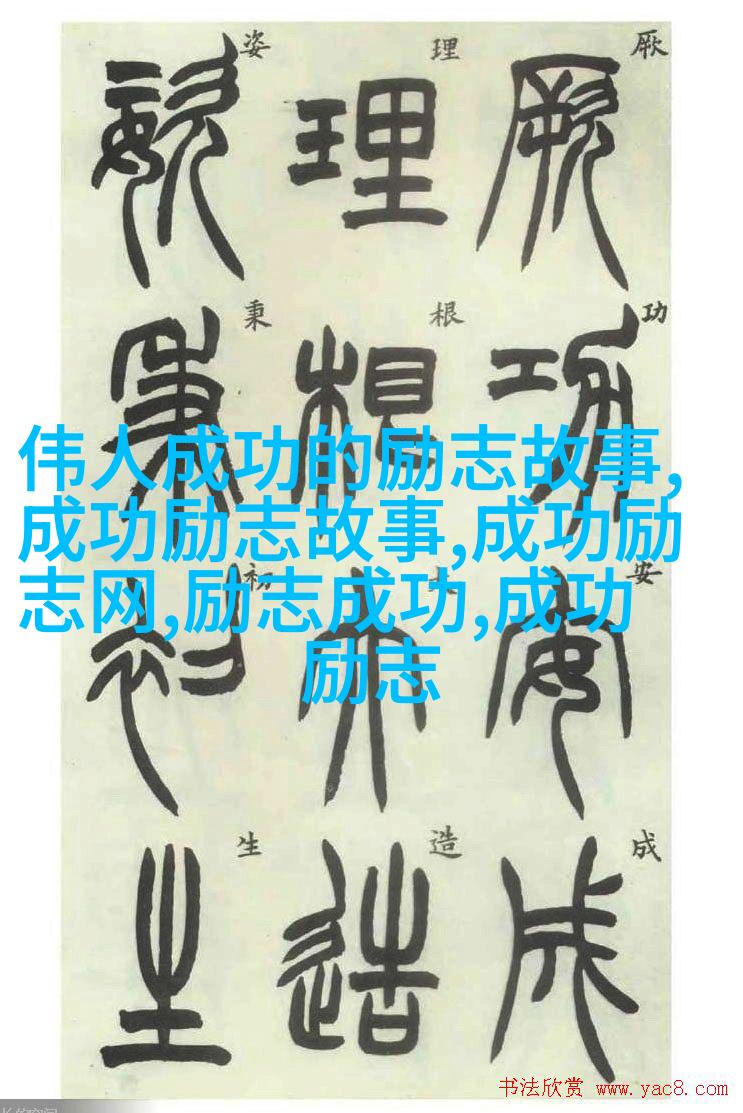 厥功安成
厥功安成
理根造
理根造
姿秉初生
姿秉初生
伟人成功的励志故事,
成功励志故事,成功励
志网,励志成功,成功
励志
书法欣赏 www.yac8.com